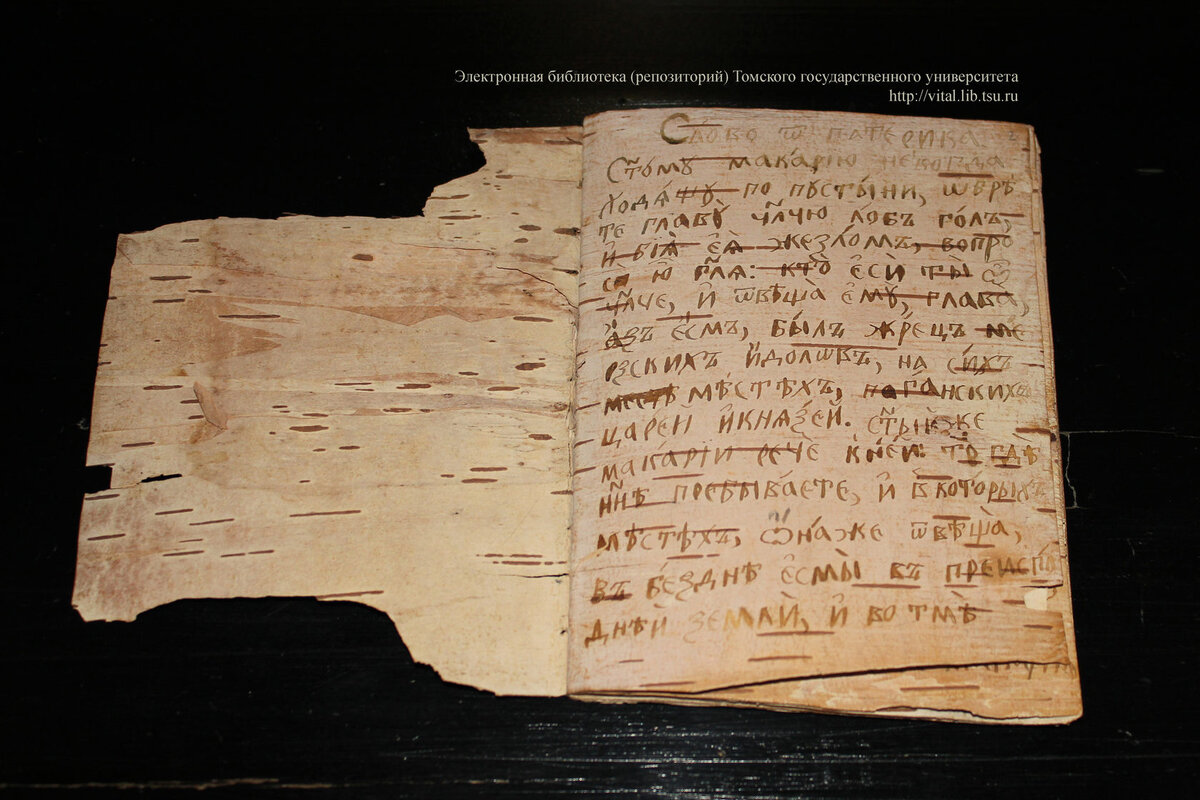 Электронная библиотека (репозиторий) Томского государственного университета
http://vital.lib.tsu.ru
Слово ѿ патерика
Ст҃ому макарїю некогда
ходѧщу по пꙋстыни, ѡбрѣ
те главꙋ чл҃чю лобъ голъ,
и҆ бїѧ̀ еѧ̀ жезломъ, вопро
си ю҆ гл҃ѧ: кто̀ є҆сѝ ты̀ ѽ
чл҃че, и҆ ѿвѣща̀ є҆мꙋ, глава,
а҆зъ є҆смь, былъ жрецъ ме
рзскихъ и҆долѡвъ, на сихъ
местѣ мѣстѣхъ, поганскихъ
царей и҆ кнѧзей. ст҃ыйже
макарїй речѐ к не́й: то гдѣ
нн҃ѣ пребываете, и҆ в которыхъ
мѣстѣхъ, ѻ҆на́же ѿвѣща̀,
въ безднѣ є҆смы̀ въ преиспо
днѣй земли, и҆ во тмѣ